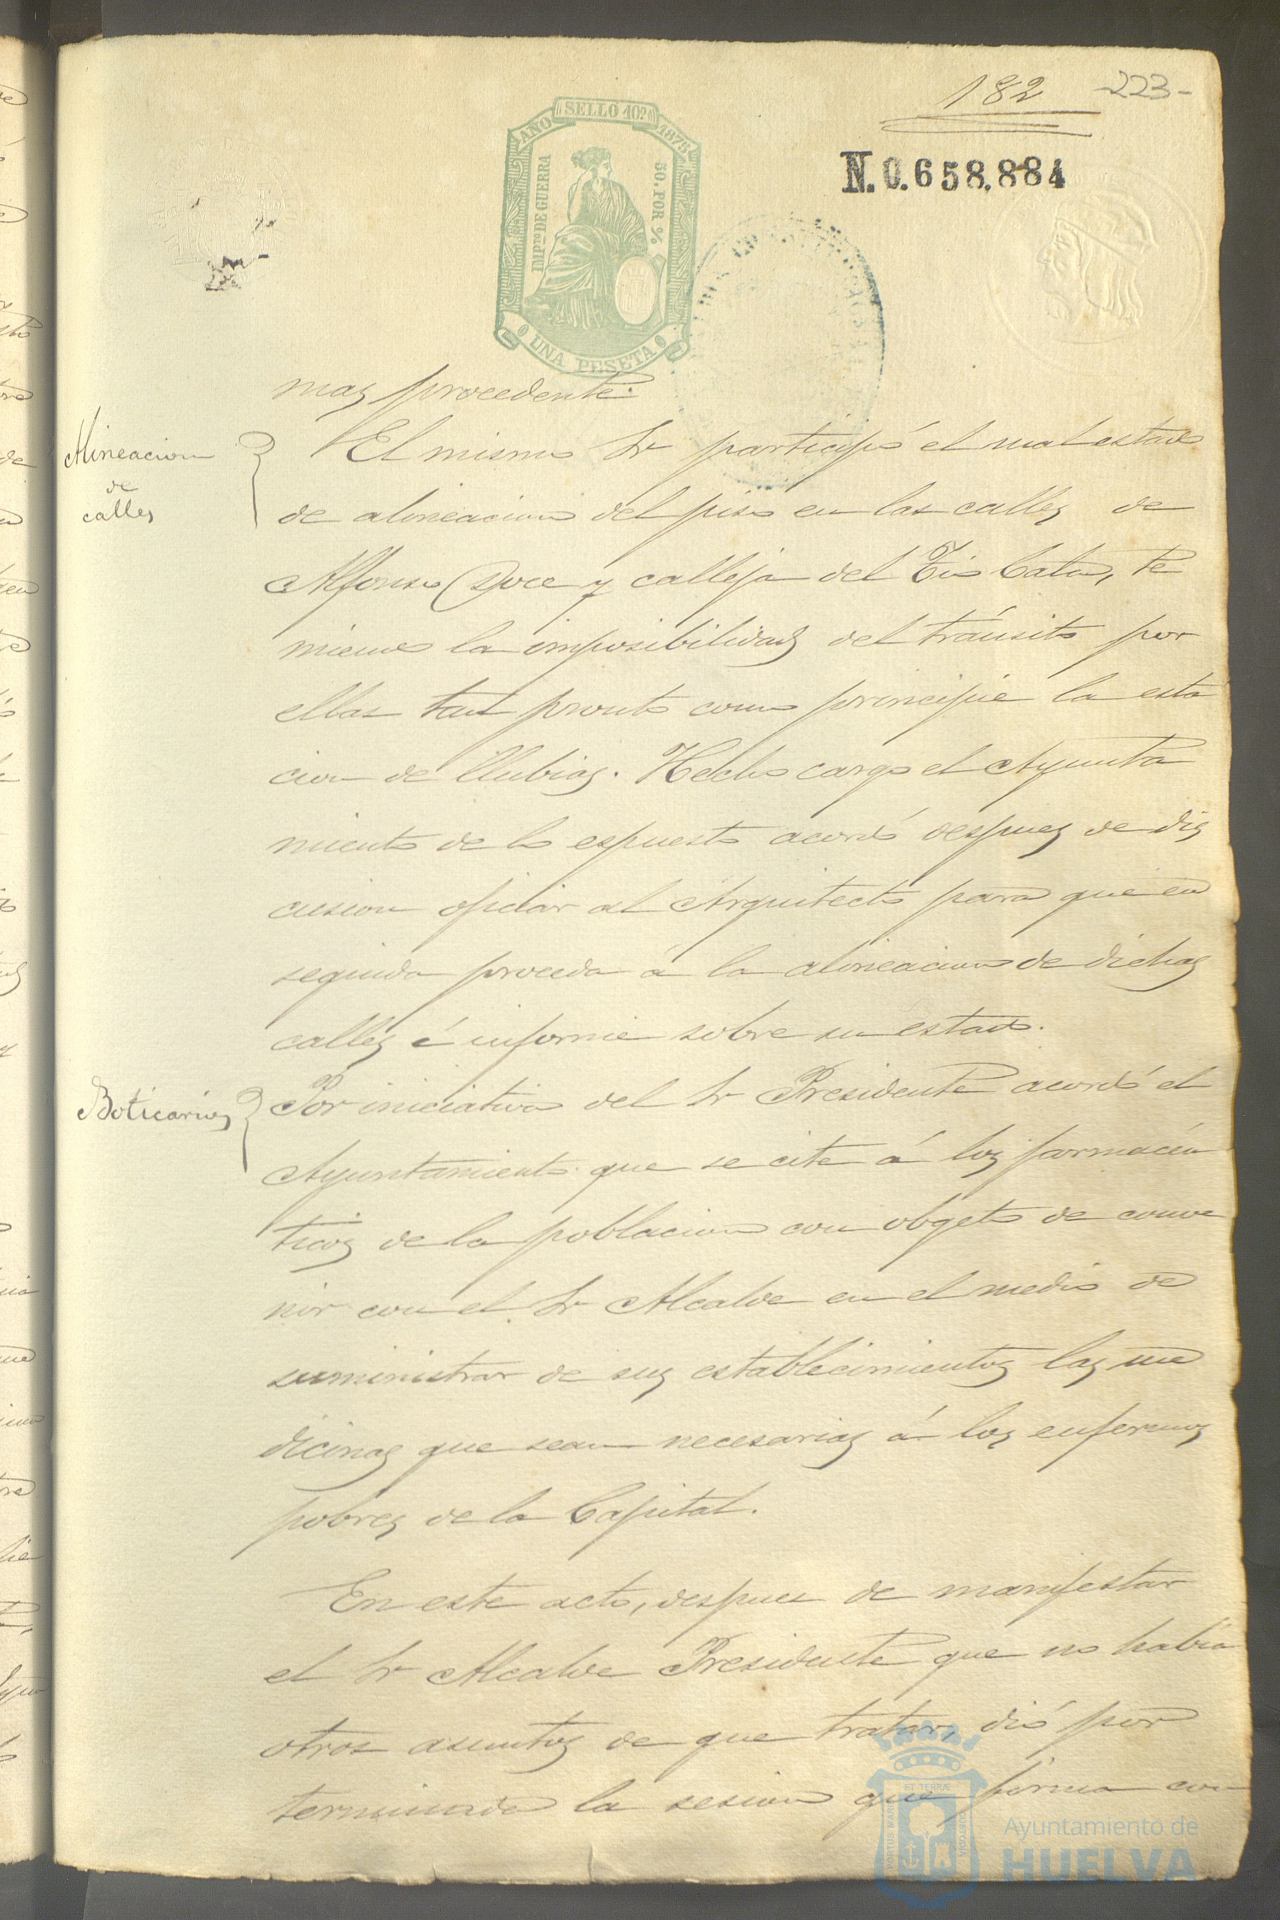 182
-223-
N.0.658,884
AÑO SELLO 10º 1875
IMPTO DE GUERRA
50. POR %
UNA PESETA
mas procedente.
Alineacion
de
calles
El mismo Sr participó el mal estado
de alineacion del piso en las calles de
Alfonso Doce y calleja del Tio Cata, te
miendo la imposibilidad del tránsito por
ellas tan pronto como principie la esta
cion de llubias. Hecho cargo el Ayunta
miento de lo espuesto acordó despues de dis
cusion oficiar al Arquitecto para que en
seguida proceda á la alineacion de dichas
calles é informe sobre su estado.
Boticarios
Por iniciativa del Sr Presidente acordó el
Ayuntamiento que se cite á los farmaceu
ticos de la poblacion con obgeto de conve
nir con el Sr Alcalde en el medio de
suministrar de sus establecimientos las me
dicinas que sean necesarias á los enfermos
pobres de la Capital.
En este acto, despues de manifestar
el Sr Alcalde Presidente que no habia
otros asuntos de que tratar, dió por
terminada la sesion que firma con
PORTUS MARIS ET TERRÆ CUSTODIA
Ayuntamiento de
HUELVA